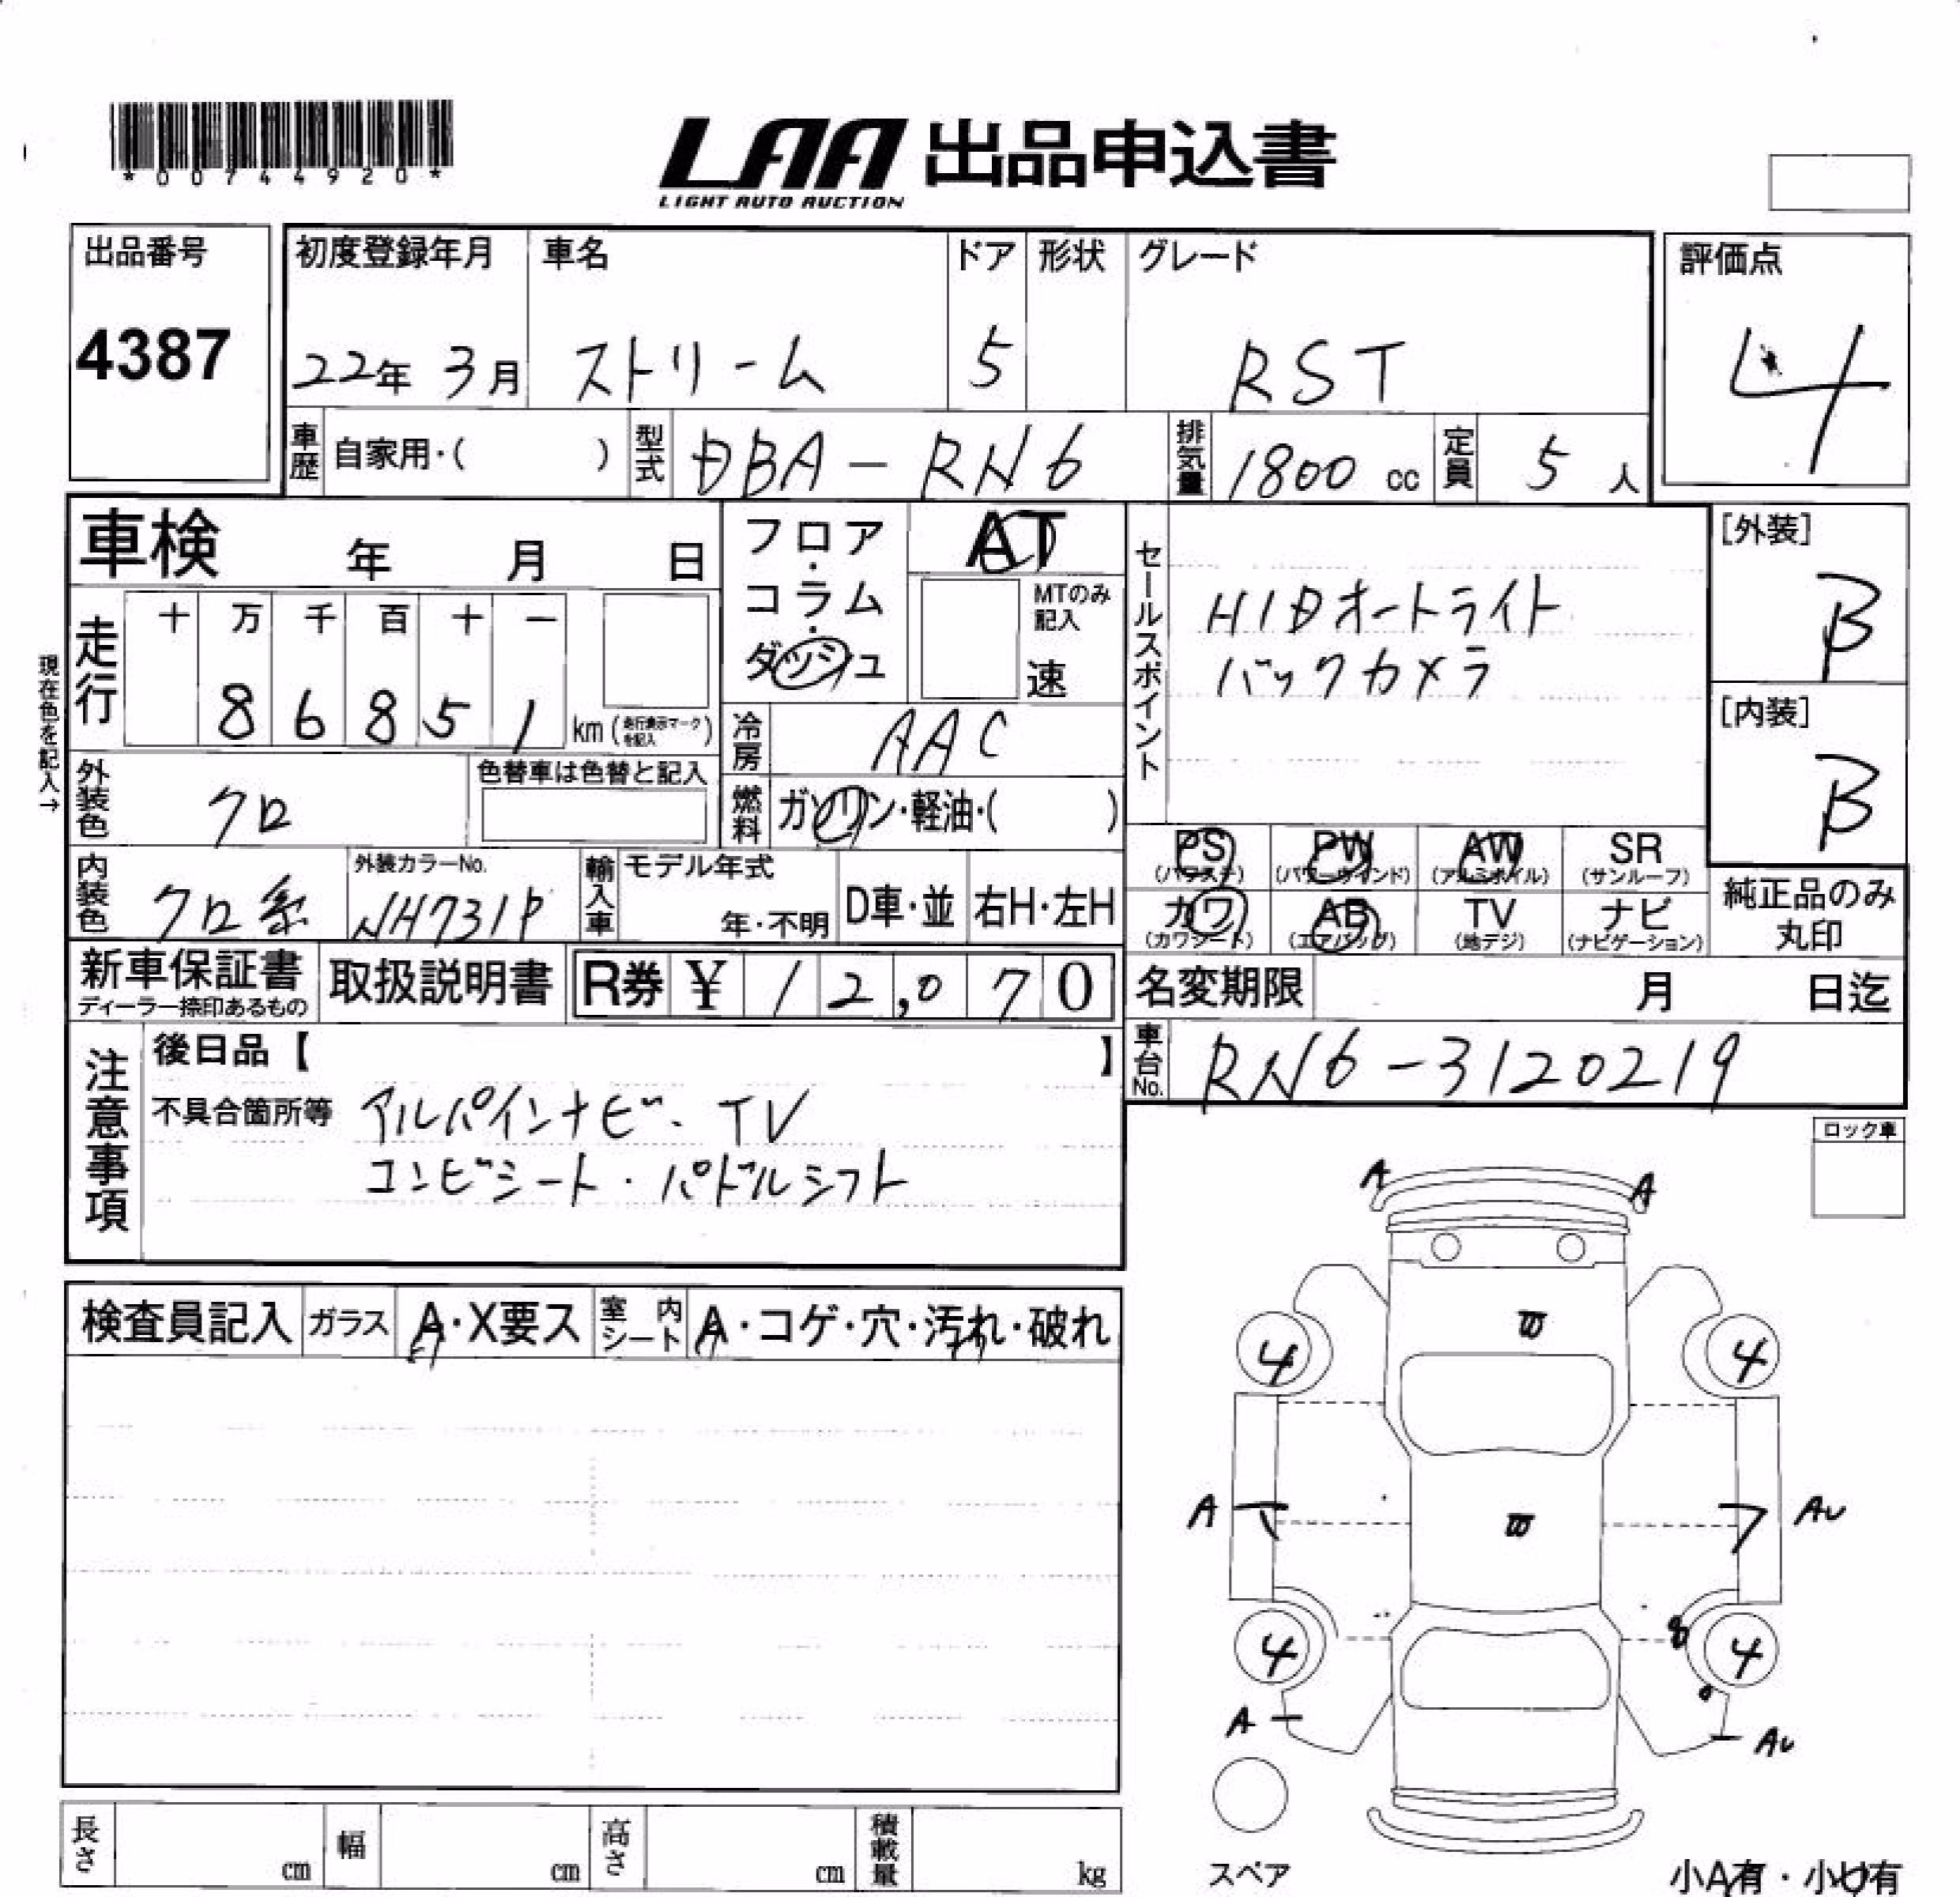 *00744920*
LAA 出品申込書
LIGHT AUTO AUCTION
出品番号
4387
初度登録年月 車名 ドア 形状 グレード
22年 3月 ストリーム 5 RST
評価点
4
車歴 自家用・( ) 型式 DBA-RN6 排気量 1800 cc 定員 5 人
車検 年 月 日
フロア・コラム・ダッシュ
AT
MTのみ記入
速
セールスポイント
HIDオートライト
バックカメラ
[外装]
B
[内装]
B
現在色を記入→
走行 十 万 千 百 十 一
8 6 8 5 1 km (走行表示マークを記入)
冷房 AAC
外装色 クロ
色替車は色替と記入
燃料 ガソリン・軽油・( )
PS (パワステ) PW (パワーウインド) AW (アルミホイル) SR (サンルーフ)
カワ (カワシート) AB (エアバッグ) TV (地デジ) ナビ (ナビゲーション)
純正品のみ丸印
内装色 クロ系
外装カラーNo.
NH731P
輸入車 モデル年式
年・不明 D車・並 右H・左H
新車保証書
ディーラー捺印あるもの
取扱説明書 R券 ¥ 12,070
名変期限 月 日迄
車台No. RN6-3120219
注意事項
後日品【 】
不具合箇所等 アルパインナビ・TV
コンビシート・パドルシフト
ロック車
A A
検査員記入 ガラス A・X要ス 室内シート A・コゲ・穴・汚れ・破れ
4 4
A AU
4 4
A AU
長さ cm 幅 cm 高さ cm 積載量 kg
スペア
小A有・小U有